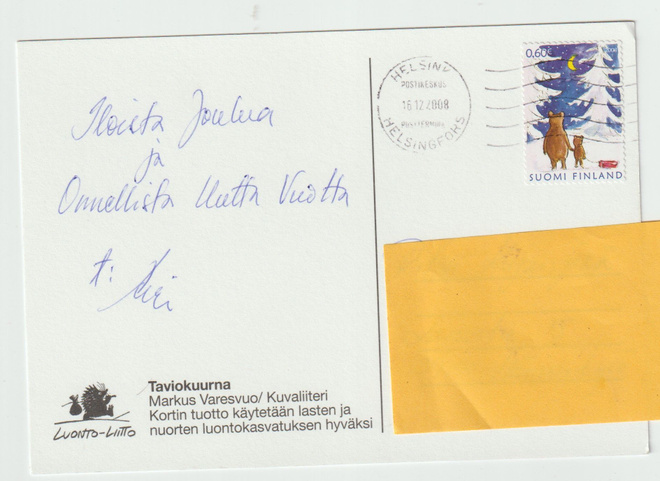 Iloista Joulua
ja
Onnellista Uutta Vuotta
t:
HELSINKI
POSTIKESKUS
16.12.2008
POSTCENTRAL
HELSINGFORS
0,60€
SUOMI FINLAND
Taviokuurna
Markus Varesvuo/ Kuvaliiteri
Kortin tuotto käytetään lasten ja
nuorten luontokasvatuksen hyväksi
LUONTO-LIITTO